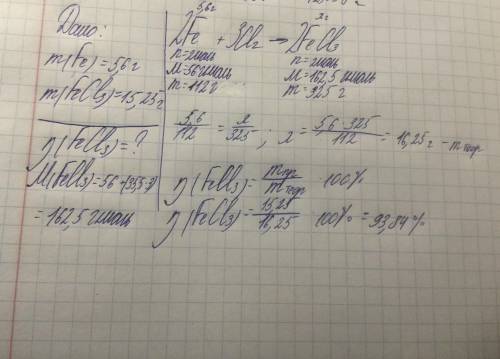 Дано:
m(Fe)=56г
m(FeCl3)=15,25г
η(FeCl3)=?
M(FeCl3)=56+(35,5·3)
=162,5 г/моль
5,6г xг
2Fe + 3Cl2 → 2FeCl3
n=2моль n=2моль
M=56г/моль M=162,5 г/моль
m=112г m=325г
5,6/112 = x/325 ; x = 5,6·325/112 = 16,25г - mтеор
η(FeCl3)= mпр/mтеор · 100%
η(FeCl3)= 15,25/16,25 · 100% = 93,84%